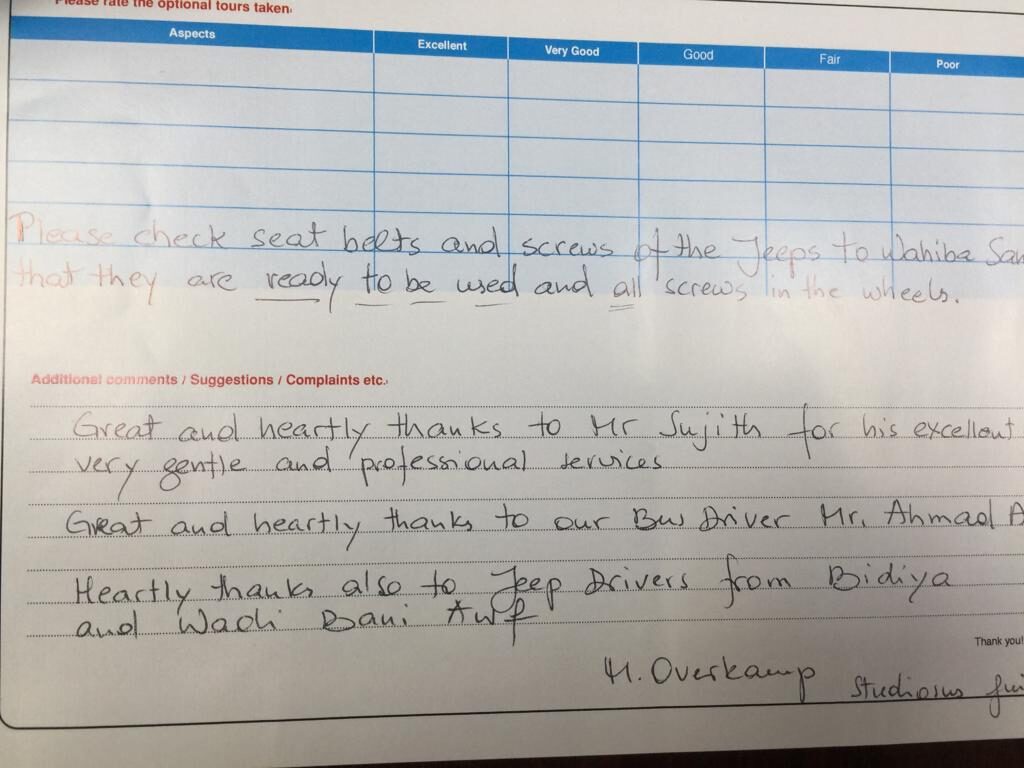 Please rate the optional tours taken.
Aspects Excellent Very Good Good Fair Poor
Please check seat belts and screws of the Jeeps to Wahiba San
that they are ready to be used and all screws in the wheels.
Additional comments / Suggestions / Complaints etc.
Great and heartly thanks to Mr Sujith for his excellent
very gentle and professional services
Great and heartly thanks to our Bus Driver Mr. Ahmad A
Heartly thanks also to Jeep Drivers from Bidiya
and Wadi Bani Awf
Thank you!
H. Overkamp Studiosus